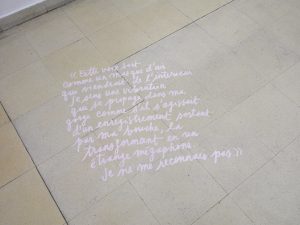 « Cette voix sort
comme un masque d'air
qui viendrait de l'intérieur
je sens une vibration
qui se propage dans ma
gorge comme s'il s'agissait
d'un enregistrement sortant
par ma bouche, la
transformant en un
étrange mégaphone.
Je ne me reconnais pas »